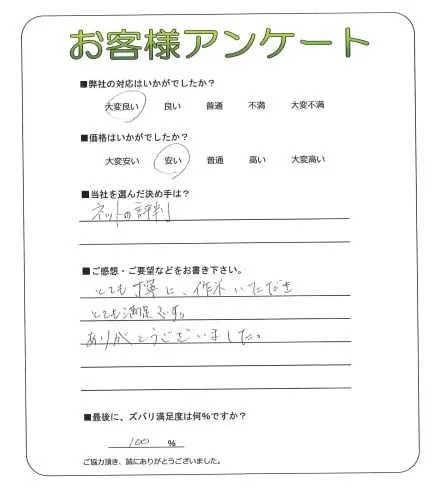 お客様アンケート
■弊社の対応はいかがでしたか？
大変良い 良い 普通 不満 大変不満
■価格はいかがでしたか？
大変安い 安い 普通 高い 大変高い
■当社を選んだ決め手は？
ネットの評判
■ご感想・ご要望などをお書き下さい。
とても丁寧に、作業いただき
とても満足です。
ありがとうございました。
■最後に、ズバリ満足度は何%ですか？
100 %
ご協力頂き、誠にありがとうございました。